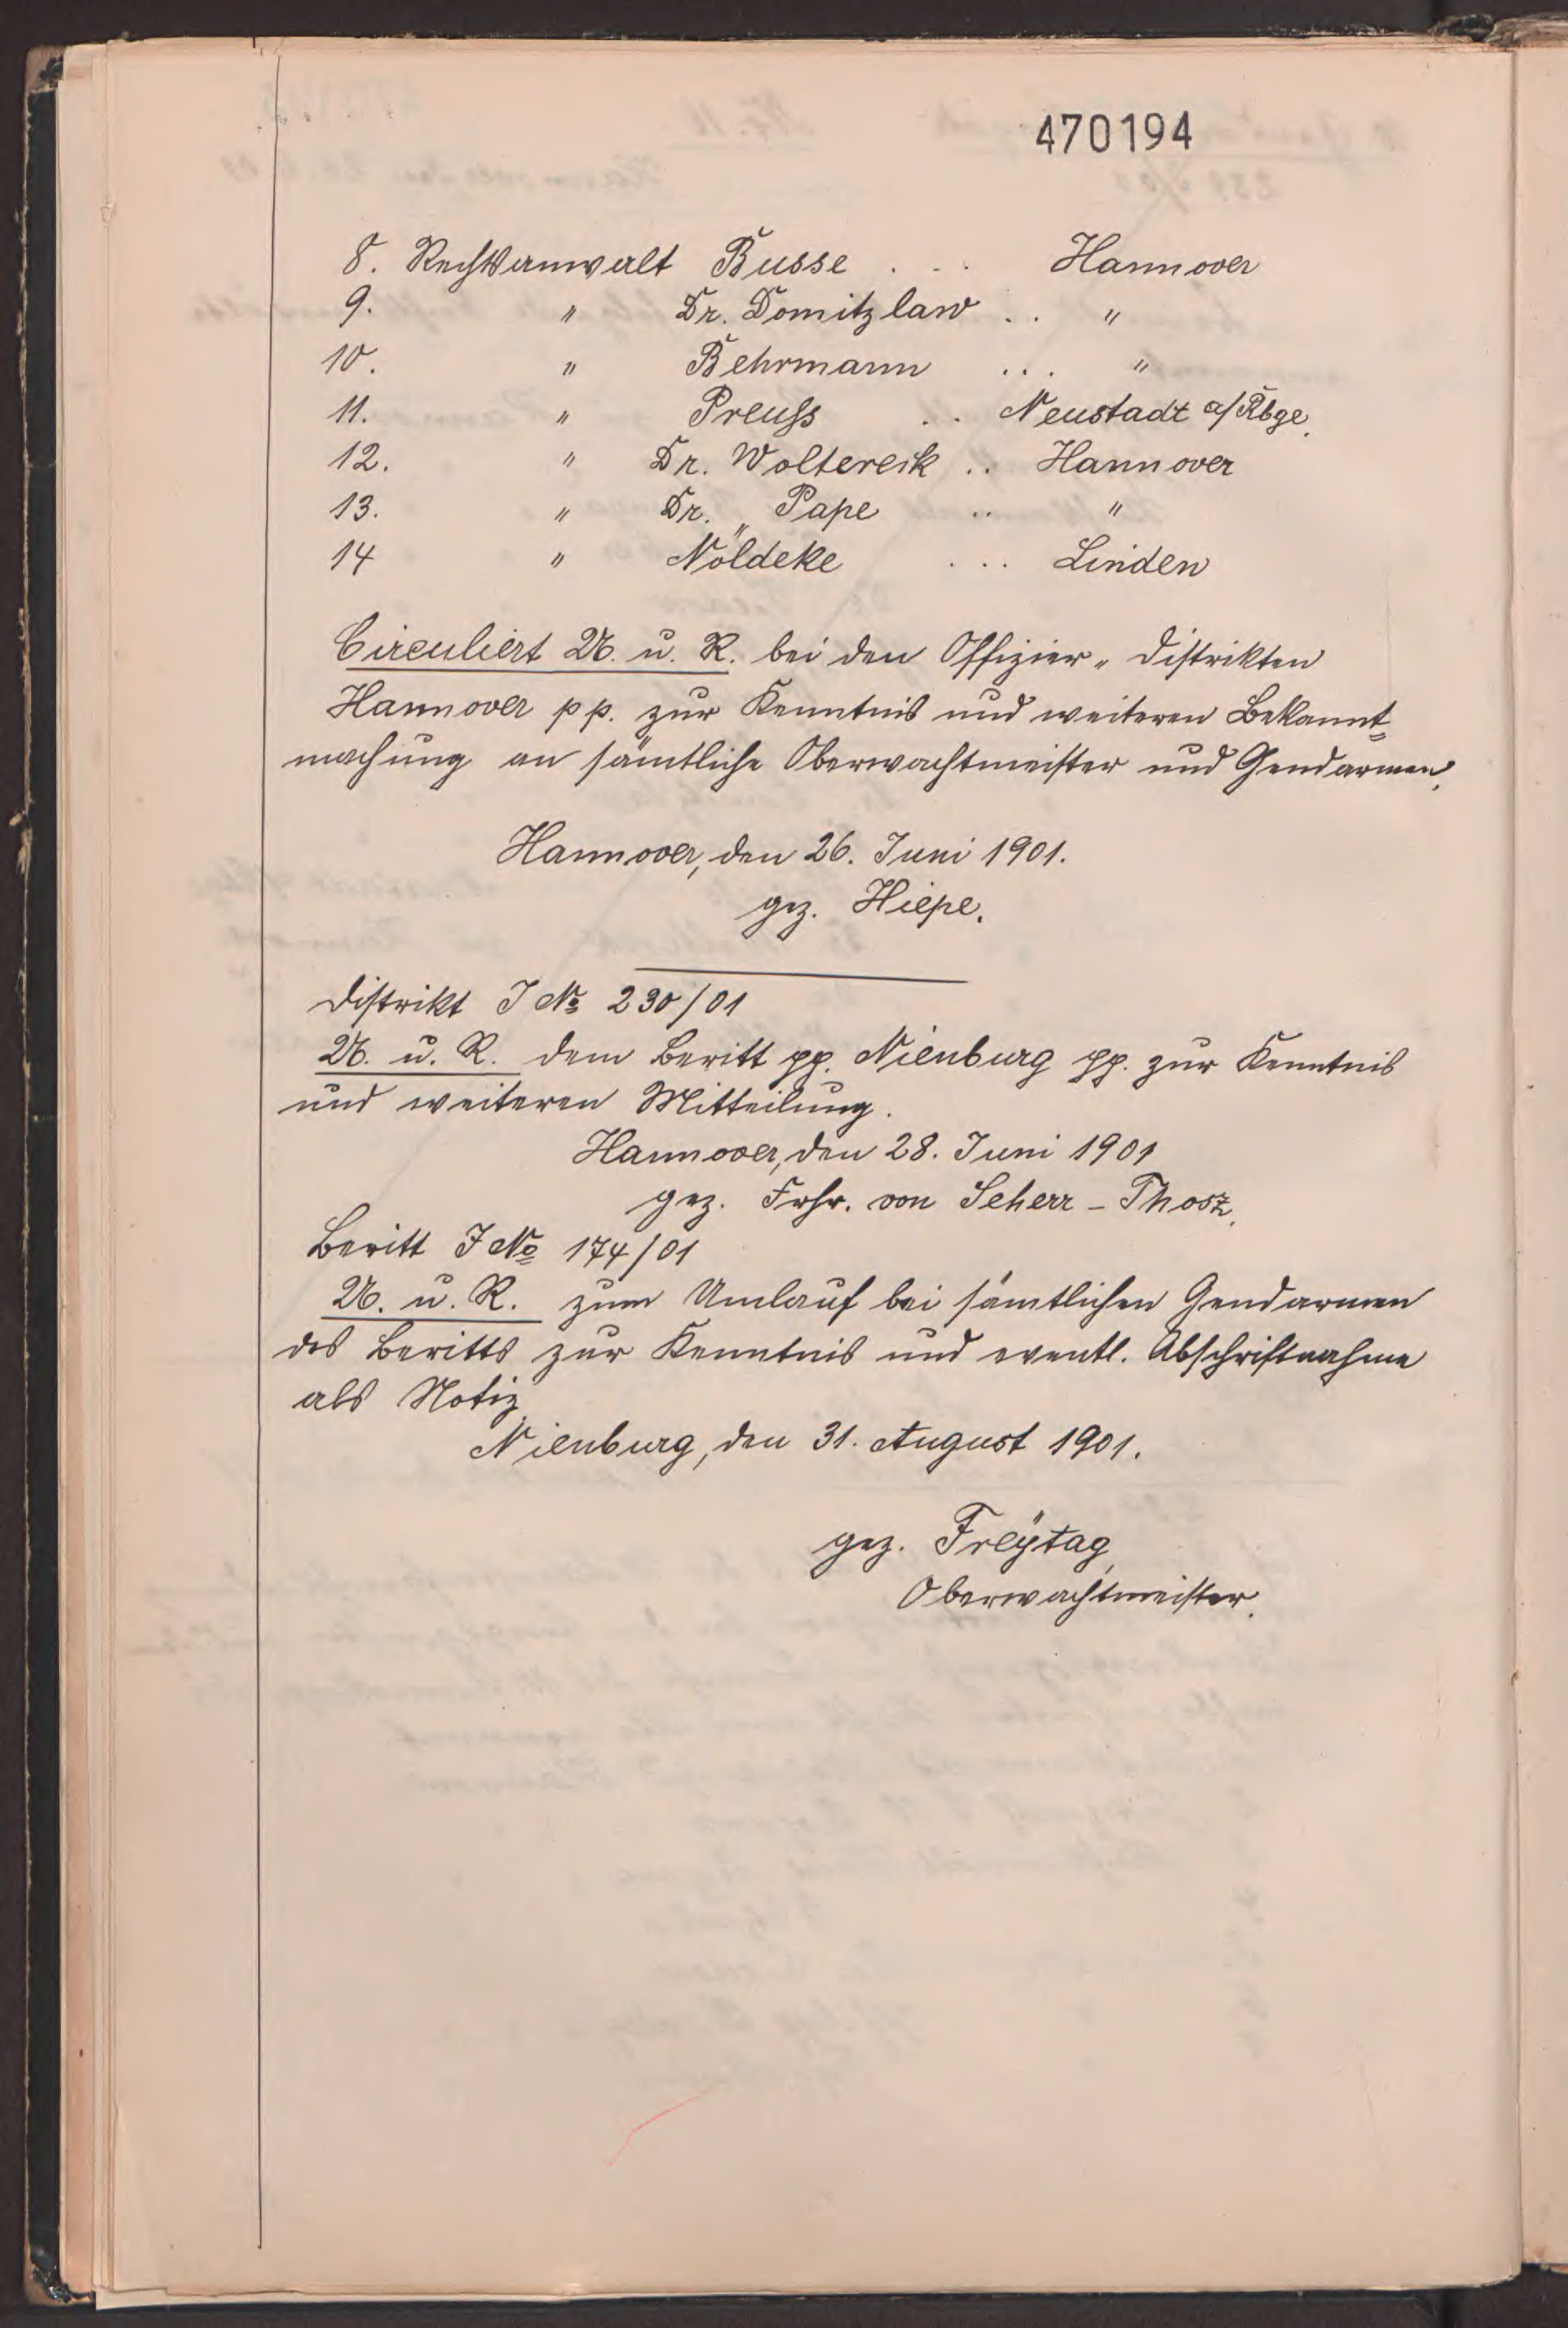 470194
8. Rechtsanwalt Busse . . . Hannover
9. " Dr. Domitzlaw . . "
10. " Behrmann . . . "
11. " Preuß . . Neustadt a/Rbge.
12. " Dr. Woltereck . . Hannover
13. " Dr. Pape . . "
14 " Nöldeke . . . Linden
Circuliert U. u. R. bei den Offizier-Distrikten
Hannover pp. zur Kenntnis und weiteren Bekannt=
machung an sämtliche Oberwachtmeister und Gendarmen.
Hannover, den 26. Juni 1901.
gez. Hiepe.
Distrikt J No 230/01
U. u. R. dem Beritt pp. Nienburg pp. zur Kenntnis
und weiteren Mitteilung.
Hannover, den 28. Juni 1901
gez. Frhr. von Scherr-Thosz.
Beritt J No 174/01
U. u. R. zum Umlauf bei sämtlichen Gendarmen
des Beritts zur Kenntnis und eventl. Abschriftnahme
als Notiz.
Nienburg, den 31. August 1901.
gez. Freÿtag,
Oberwachtmeister.